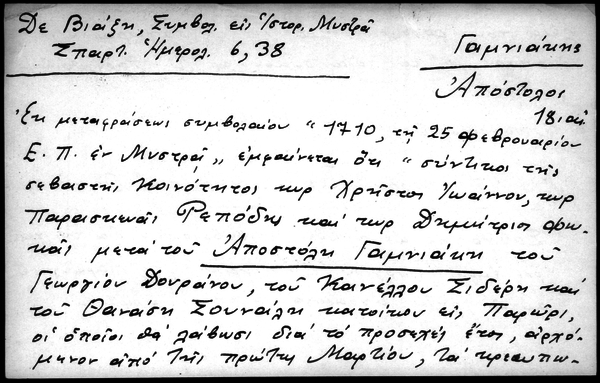 Δε Βιάζη, Συμβολ. εις Ιστορ. Μυστρᾶ
Σπαρτ. Ἡμερολ. 6, 38
Γαμνιάκης
Ἀπόστολος
18 αἰ.
Ἐκ μεταφράσεως συμβολαίου " 1710, τῇ 25 φεβρουαρίου
Ε. Π. ἐν Μυστρᾷ „ ἐμφαίνεται ὅτι " σύνδικοι τῆς
σεβαστῆς Κοινότητος κυρ Χρῆστος Ἰωάννου, κυρ
Παρασκευᾶς Ρεπόδης καὶ κυρ Δημήτριος Φω-
κᾶς μετὰ τοῦ Ἀποστόλη Γαμνιάκη τοῦ
Γεωργίου Δουράνου, τοῦ Κανέλλου Σιδέρη καὶ
τοῦ Θανάση Σουνάλη κατοίκων εἰς Παρῶρι,
οἱ ὁποῖοι θὰ λάβωσι διὰ τὸ προσεχές ἔτος, ἀρχό-
μενον ἀπὸ τῆς πρώτης Μαρτίου, τὰ κρεωπω-